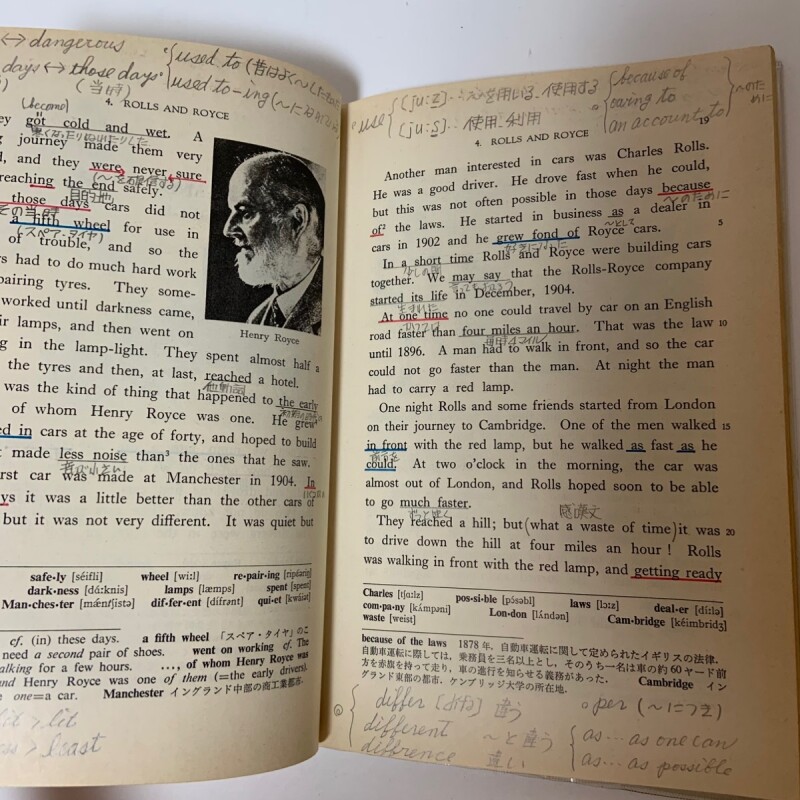 ↔ dangerous
days ↔ those days
(当時)
used to (昔はよく〜した
used to -ing (〜に
4. ROLLS AND ROYCE
(become)
ey got cold and wet. A
g journey made them very
d, and they were never sure
(〜を確信する)
reaching the end safely.
目的地
those days cars did not
その当時
a fifth wheel for use in
(スペア・タイヤ)
of trouble, and so the
rs had to do much hard work
pairing tyres. They some-
worked until darkness came,
ir lamps, and then went on
Henry Royce
g in the lamp-light. They spent almost half a
the tyres and then, at last, reached a hotel.
他動詞
was the kind of thing that happened to the early
of whom Henry Royce was one. He grew⁴
ed in cars at the age of forty, and hoped to build
t made less noise than³ the ones that he saw.
音が小さい
rst car was made at Manchester in 1904. In
ys it was a little better than the other cars of
but it was not very different. It was quiet but
safe•ly [séifli] wheel [wi:l] re•pair•ing [ripéəriŋ]
dark•ness [dá:knis] lamps [læmps] spent [spent]
Man•ches•ter [mǽntʃistə] dif•fer•ent [dífrənt] qui•et [kwáiət]
cf. (in) these days. a fifth wheel 「スペア・タイヤ」のこ
need a second pair of shoes. went on working cf. The
alking for a few hours. …, of whom Henry Royce was
and Henry Royce was one of them (=the early drivers).
e one=a car. Manchester イングランド中部の商工業都市.
lit > lit
ess > least
use
[ju:z] ‥ 〜を用いる、使用する
[ju:s] ‥ 使用、利用
because of
owing to
an account to
〜のために
4. ROLLS AND ROYCE
19
Another man interested in cars was Charles Rolls.
He was a good driver. He drove fast when he could,
but this was not often possible in those days because
〜のために
of² the laws. He started in business as a dealer in
〜として
5
cars in 1902 and he grew fond of Royce cars.
好きになった
In a short time Rolls and Royce were building cars
少しの間
together. We may say that the Rolls-Royce company
言ってもよかろう
started its life in December, 1904.
生まれた
At one time no one could travel by car on an English
かつては
road faster than four miles an hour. That was the law 10
毎時4マイル
until 1896. A man had to walk in front, and so the car
could not go faster than the man. At night the man
had to carry a red lamp.
One night Rolls and some friends started from London
on their journey to Cambridge. One of the men walked 15
in front with the red lamp, but he walked as fast as he
could. At two o'clock in the morning, the car was
almost out of London, and Rolls hoped soon to be able
to go much faster.
ずっと速く
感嘆文
They reached a hill; but (what a waste of time) it was 20
to drive down the hill at four miles an hour! Rolls
was walking in front with the red lamp, and getting ready
Charles [tʃɑ:lz] pos•si•ble [pɔ́səbl] laws [lɔ:z] deal•er [dí:lə]
com•pa•ny [kʌ́mpəni] Lon•don [lʌ́ndən] Cam•bridge [kéimbridʒ]
waste [weist]
because of the laws 1878年, 自動車運転に関して定められたイギリスの法律.
自動車運転に際しては, 乗務員を三名以上とし, そのうち一名は車の約60ヤード前
方を赤旗を持って走り, 車の進行を知らせる義務があった. Cambridge イン
グランド東部の都市. ケンブリッジ大学の所在地.
differ 違う
different 〜と違う
diffrence 違い
per (〜につき)
as… as one can
as… as possible